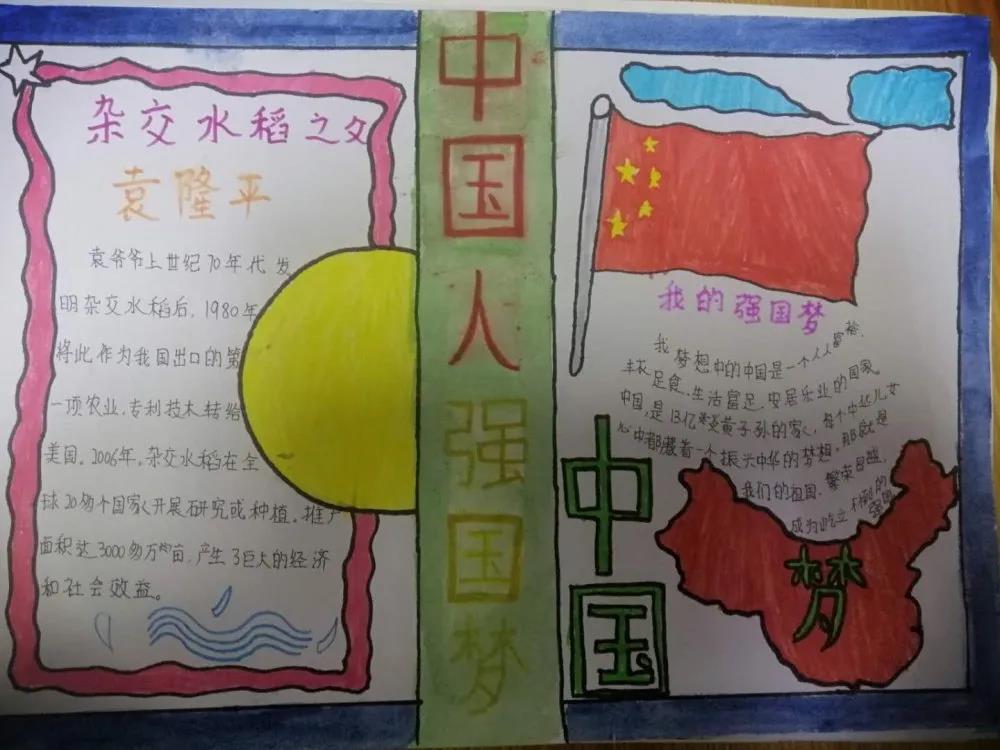 杂交水稻之父
袁隆平
袁爷爷上世纪70年代发
明杂交水稻后，1980年
将此作为我国出口的第
一项农业，专利技术转给
美国。2006年，杂交水稻在全
球20多个国家开展研究或种植。推广
面积达3000多万亩，产生了巨大的经济
和社会效益。
中国人强国梦
我的强国梦
我梦想中的中国是一个人人富裕、
丰衣足食、生活富足、安居乐业的国家。
中国，是13亿炎黄子孙的家，每个中华儿女
心中都藏着一个振兴中华的梦想，那就是
我们的祖国，繁荣昌盛，
成为屹立不倒的
强国
中国
梦